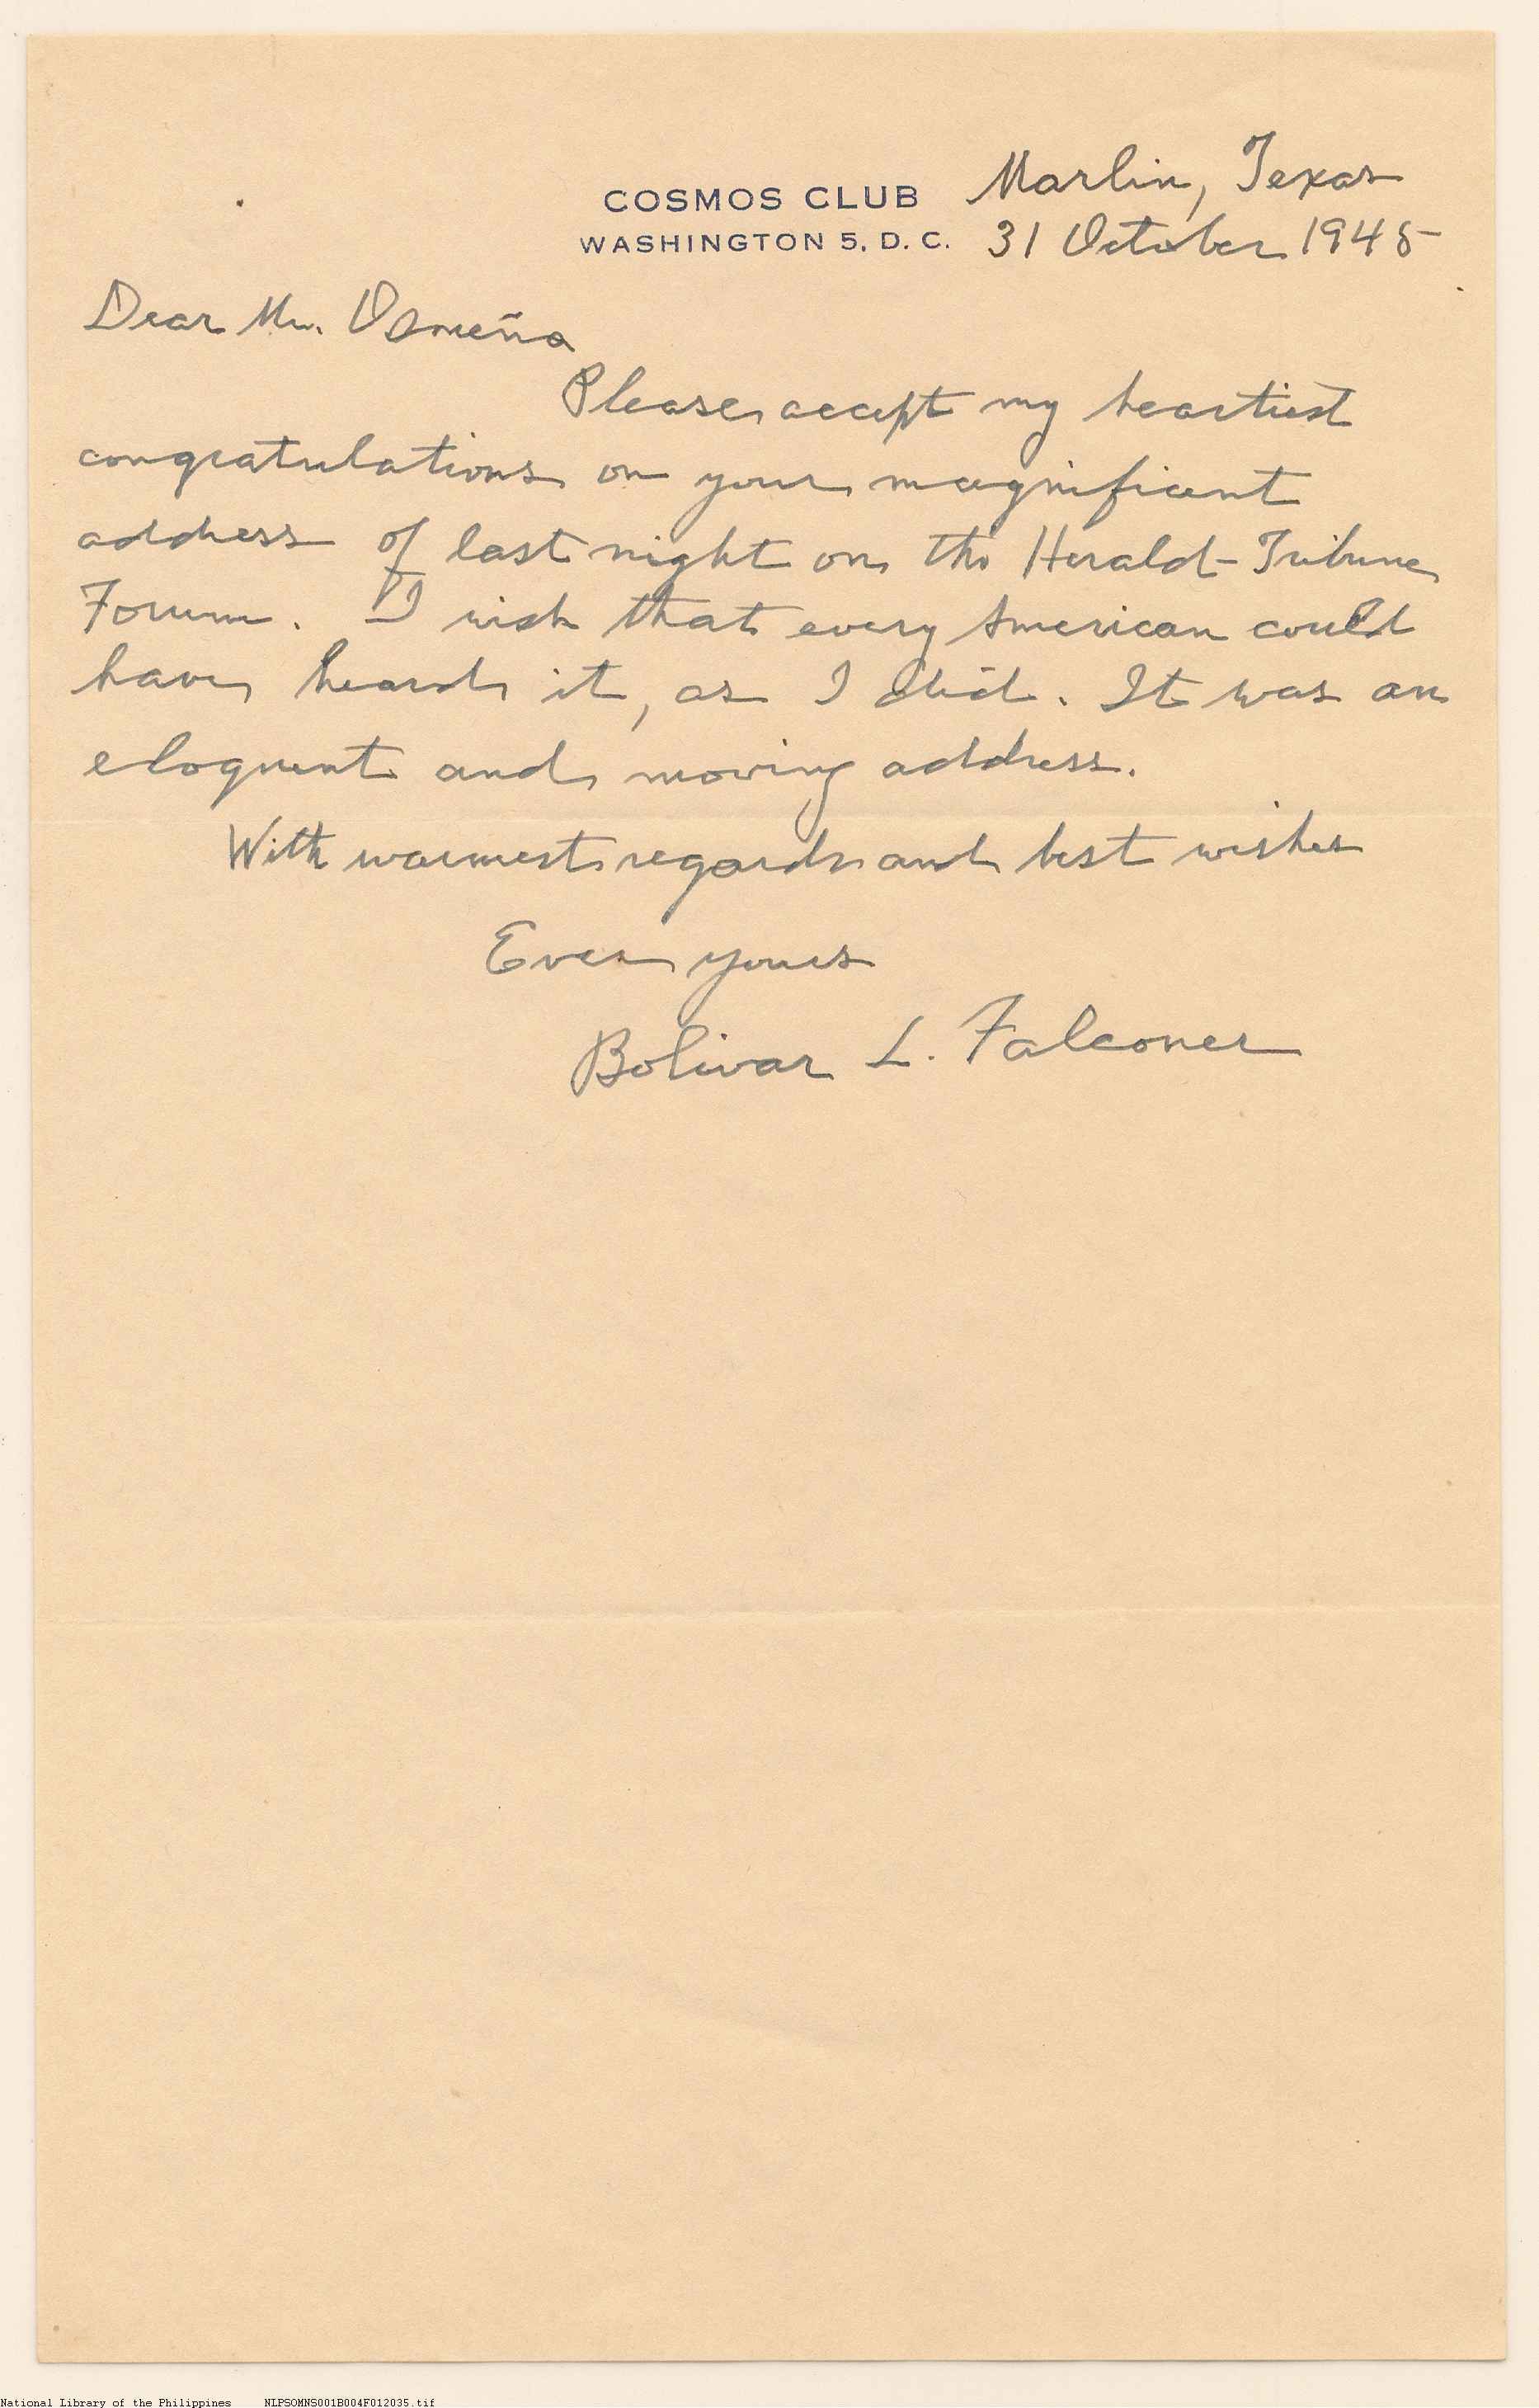 COSMOS CLUB
WASHINGTON 5, D. C.
Marlin, Texas
31 October 1945
Dear Mr. Osmeña
Please accept my heartiest
congratulations on your magnificent
address of last night on the Herald-Tribune
Forum. I wish that every American could
have heard it, as I did. It was an
eloquent and moving address.
With warmest regards and best wishes
Ever yours
Bolivar L. Falconer
National Library of the Philippines NLPSOMNS001B004F012035.tif